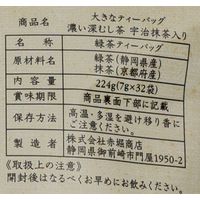 商品名 大きなティーバッグ
濃い深むし茶 宇治抹茶入り
名称 緑茶ティーバッグ
原材料名 緑茶(静岡県産)
抹茶(京都府産)
内容量 224g(7g×32袋)
賞味期限 商品裏面下部に記載
保存方法 高温・多湿を避け移り香に
ご注意ください。
製造者 株式会社赤堀商店
静岡県御前崎市門屋1950-2
《取扱上の注意》
開封後はなるべくお早めにお飲みください。